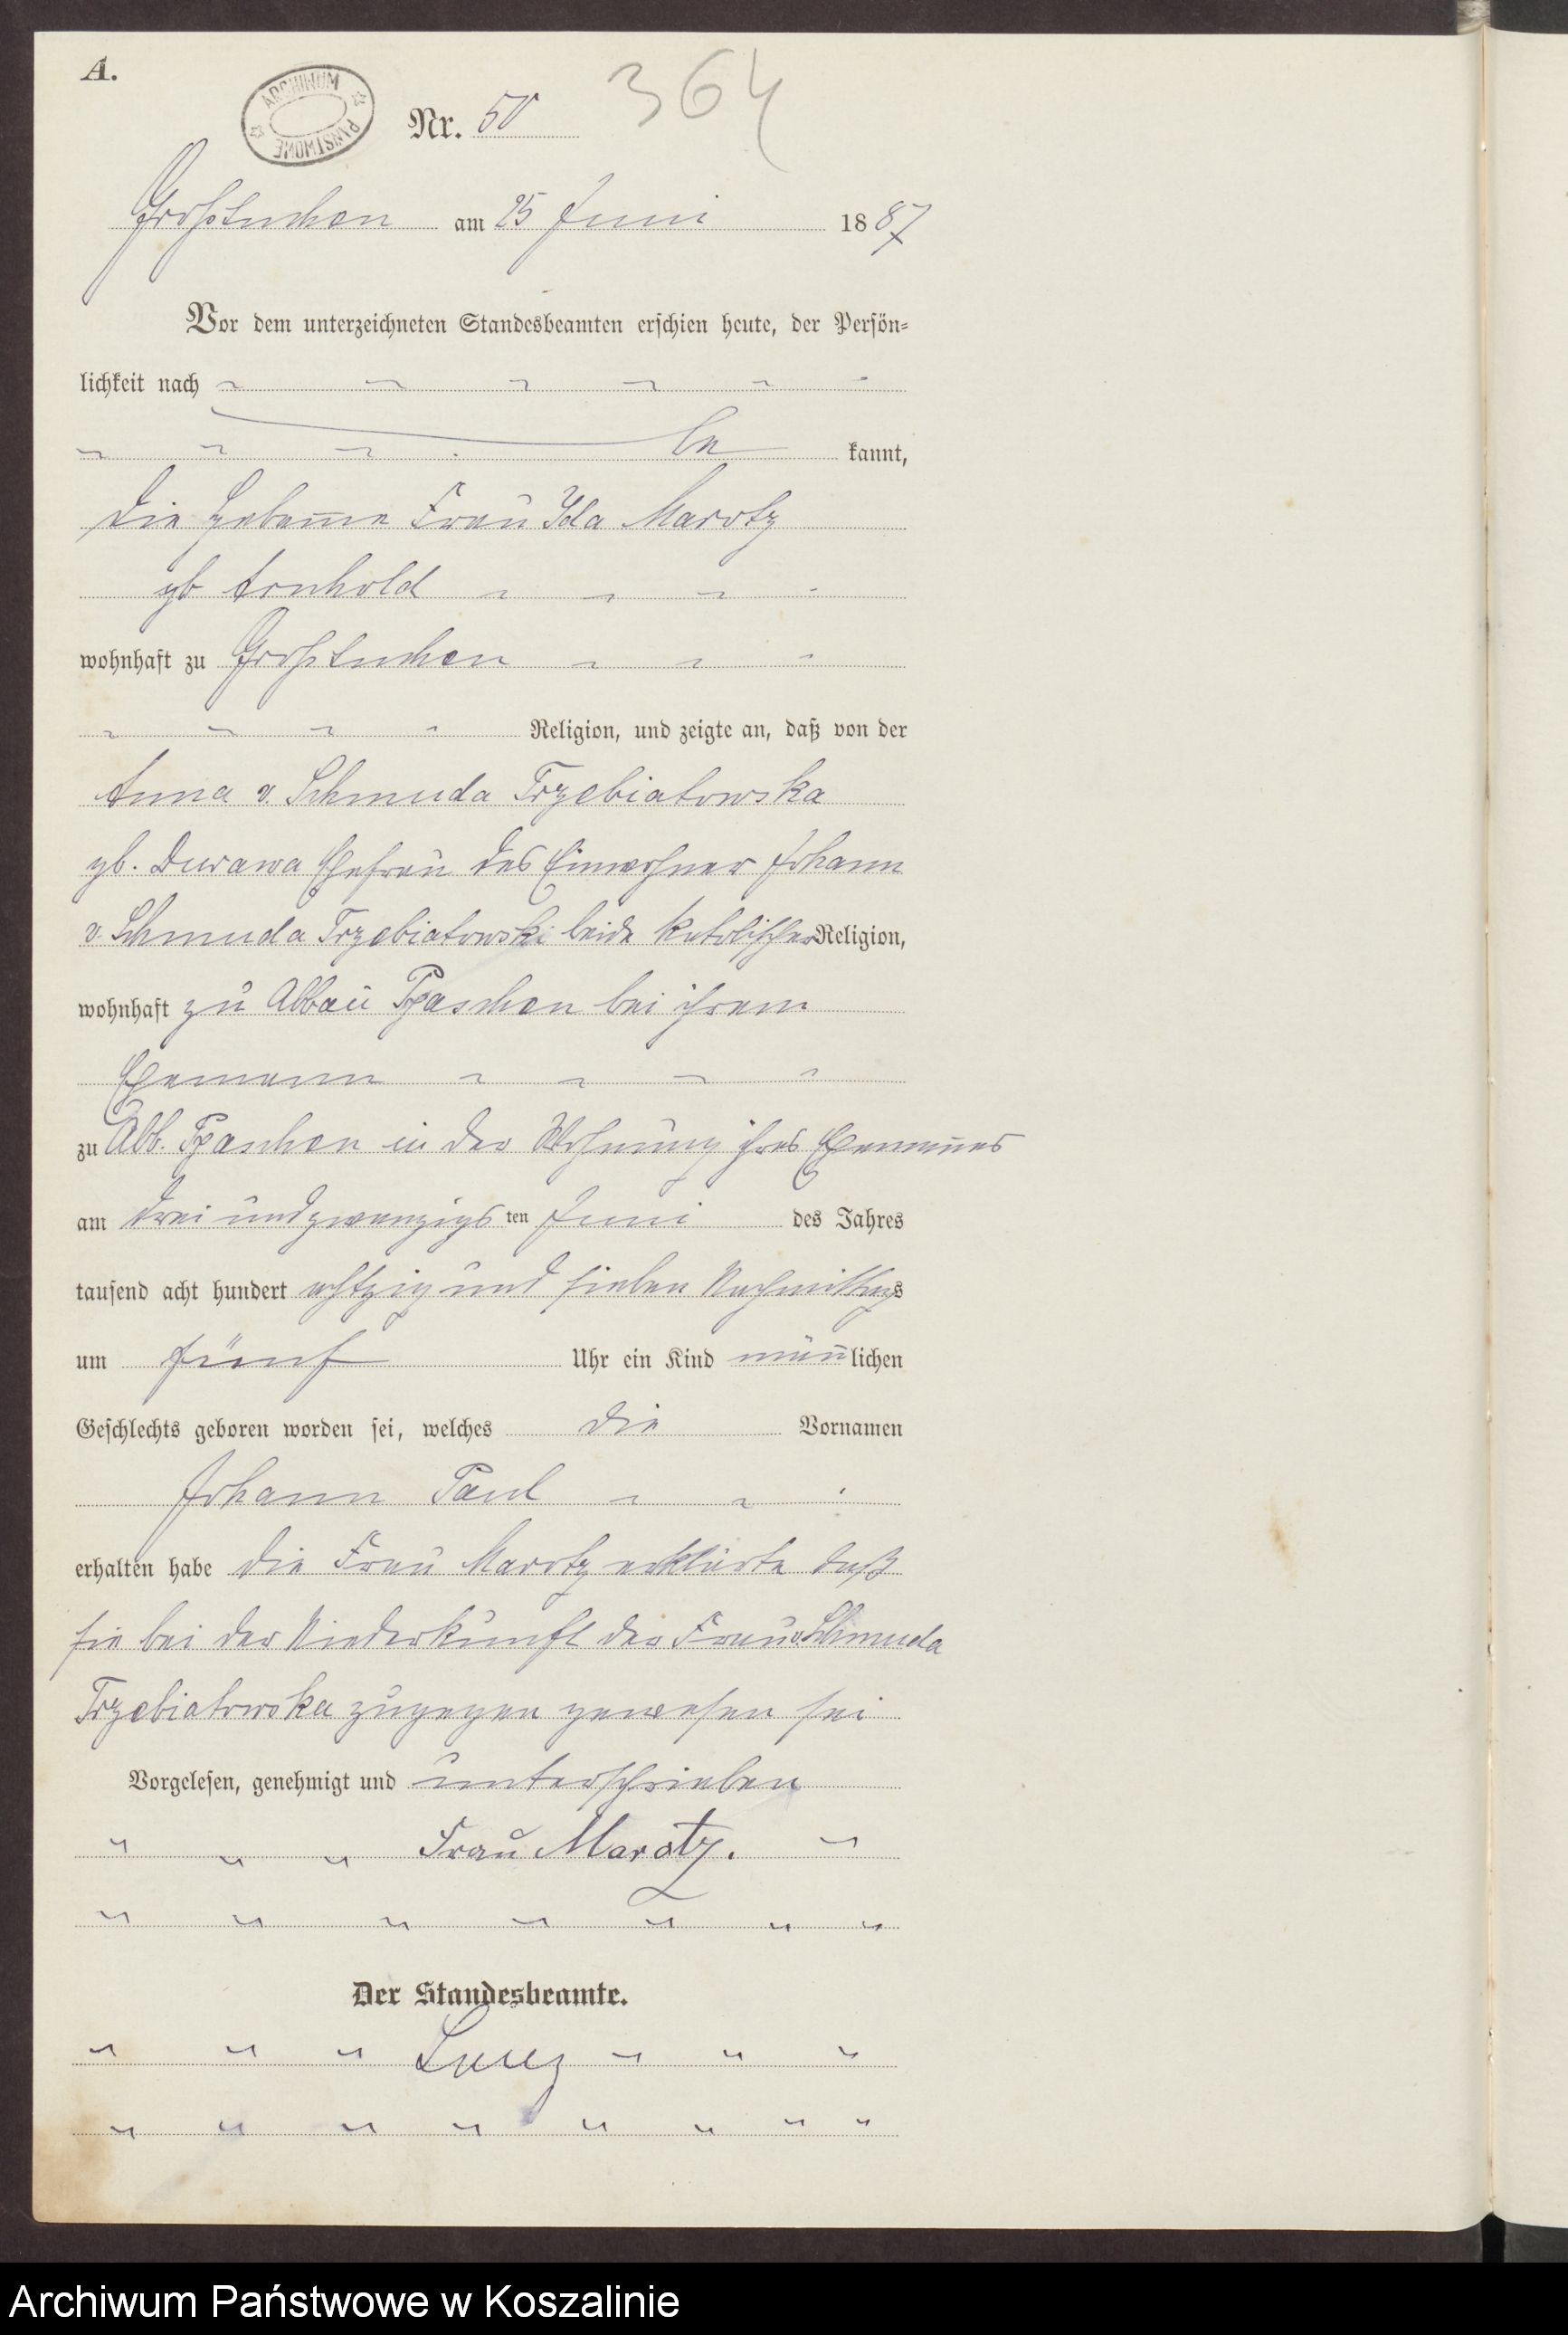 A.
ARCHIWUM PAŃSTWOWE
Nr. 50
364
Großtuchen am 25 Juni 1887
Vor dem unterzeichneten Standesbeamten erschien heute, der Persön-
lichkeit nach
be kannt,
die Hebeamme Frau Ida Marotz
gb Arnhold
wohnhaft zu Großtuchen
Religion, und zeigte an, daß von der
Anna v. Schmuda Trzebiatowska
gb. Durawa Ehefrau des Einwohner Johann
v. Schmuda Trzebiatowski beide katolischer Religion,
wohnhaft zu Abbau bei ihrem
Ehemann
zu Abb. in der Wohnung ihres Ehemannes
am drei und zwanzigsten Juni des Jahres
tausend acht hundert achtzig und sieben Nachmittags
um fünf Uhr ein Kind männlichen
Geschlechts geboren worden sei, welches die Vornamen
Johann Paul
erhalten habe die Frau Marotz erklärte daß
sie bei der Niederkunft der Frau v. Schmuda
Trzebiatowska zugegen gewesen sei
Vorgelesen, genehmigt und unterschrieben
Frau Marotz.
Der Standesbeamte.
Archiwum Państwowe w Koszalinie